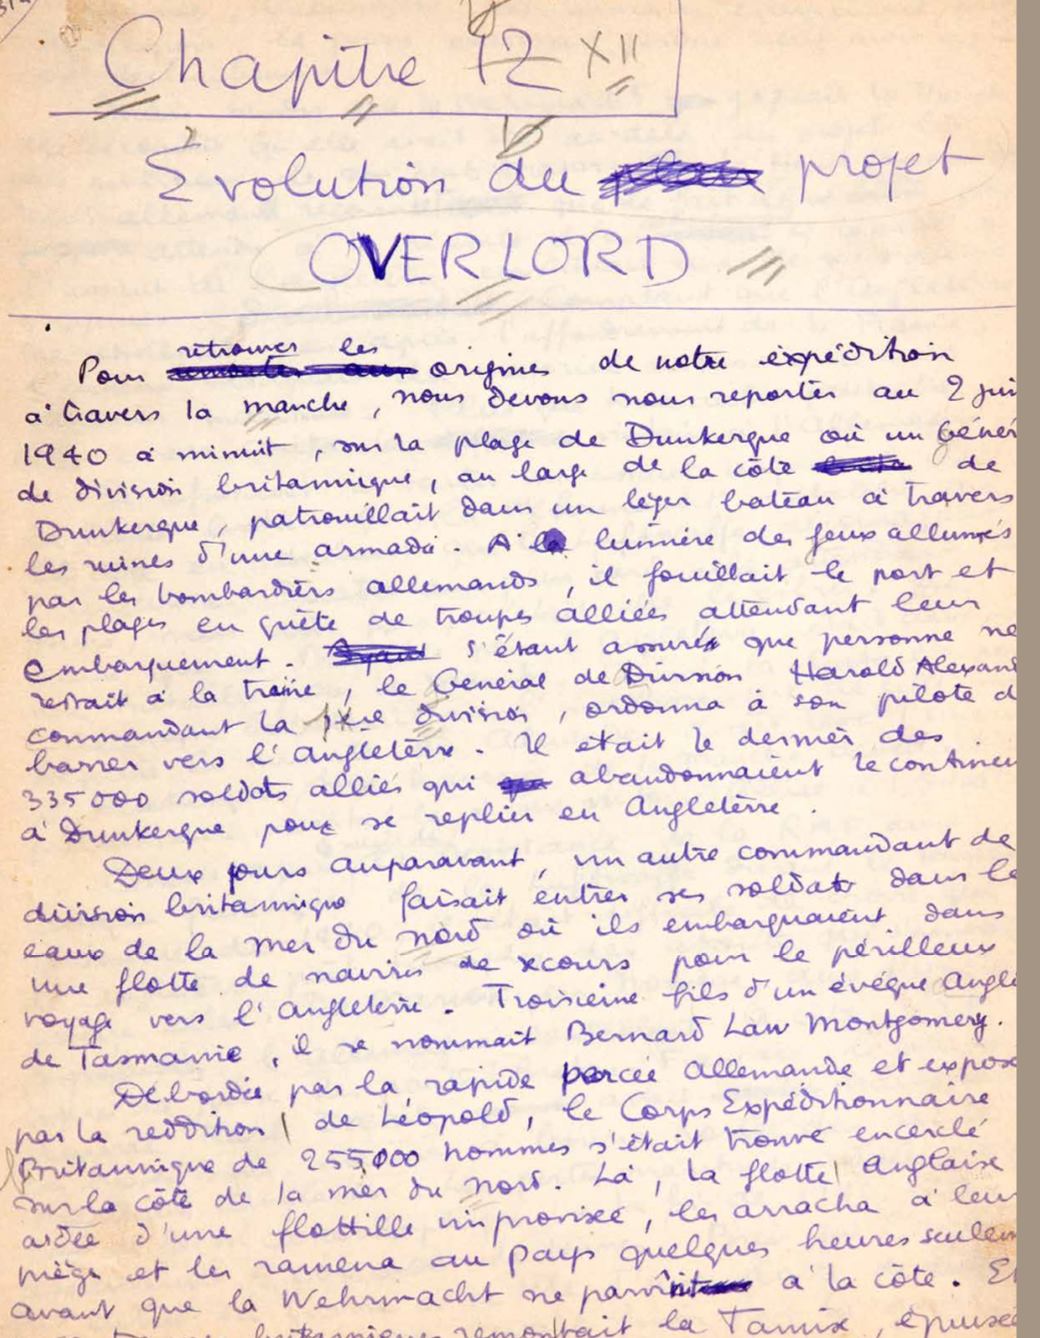 Chapitre 12 XII
Evolution du projet
OVERLORD
retrouver les
Pour origines de notre expédition
à travers la manche, nous devons nous reporter au 2 juin
1940 à minuit, sur la plage de Dunkerque où un Génér
de division britannique, au large de la côte de
Dunkerque, patrouillait dans un léger bateau à travers
les ruines d'une armada. A la lumière des feux allumés
par les bombardiers allemands, il fouillait le port et
les plages en quête de troupes alliées attendant leur
embarquement. s'étant assuré que personne ne
restait à la traîne, le Général de Division Harold Alexand
commandant la 1ère division, ordonna à son pilote d
barrer vers l'Angleterre. Il était le dernier des
335000 soldats alliés qui abandonnaient le continen
à Dunkerque pour se replier en Angleterre.
Deux jours auparavant, un autre commandant de
division britannique faisait entrer ses soldats dans le
eaux de la mer du nord où ils embarquaient dans
une flotte de navires de secours pour le périlleux
voyage vers l'Angleterre. Troisième fils d'un évêque Angli
de Tasmanie, il se nommait Bernard Law Montgomery.
Débordée par la rapide percée allemande et exposé
par la reddition de Léopold, le Corps Expéditionnaire
Britannique de 255,000 hommes s'était trouvé encerclé
sur la côte de la mer du nord. Là, la flotte Anglaise
aidée d'une flottille improvisée, les arracha à leur
piège et les ramena au pays quelques heures seulem
avant que la Wehrmacht ne parvînt à la côte. Et
britanniques remontait la Tamise, épuisée